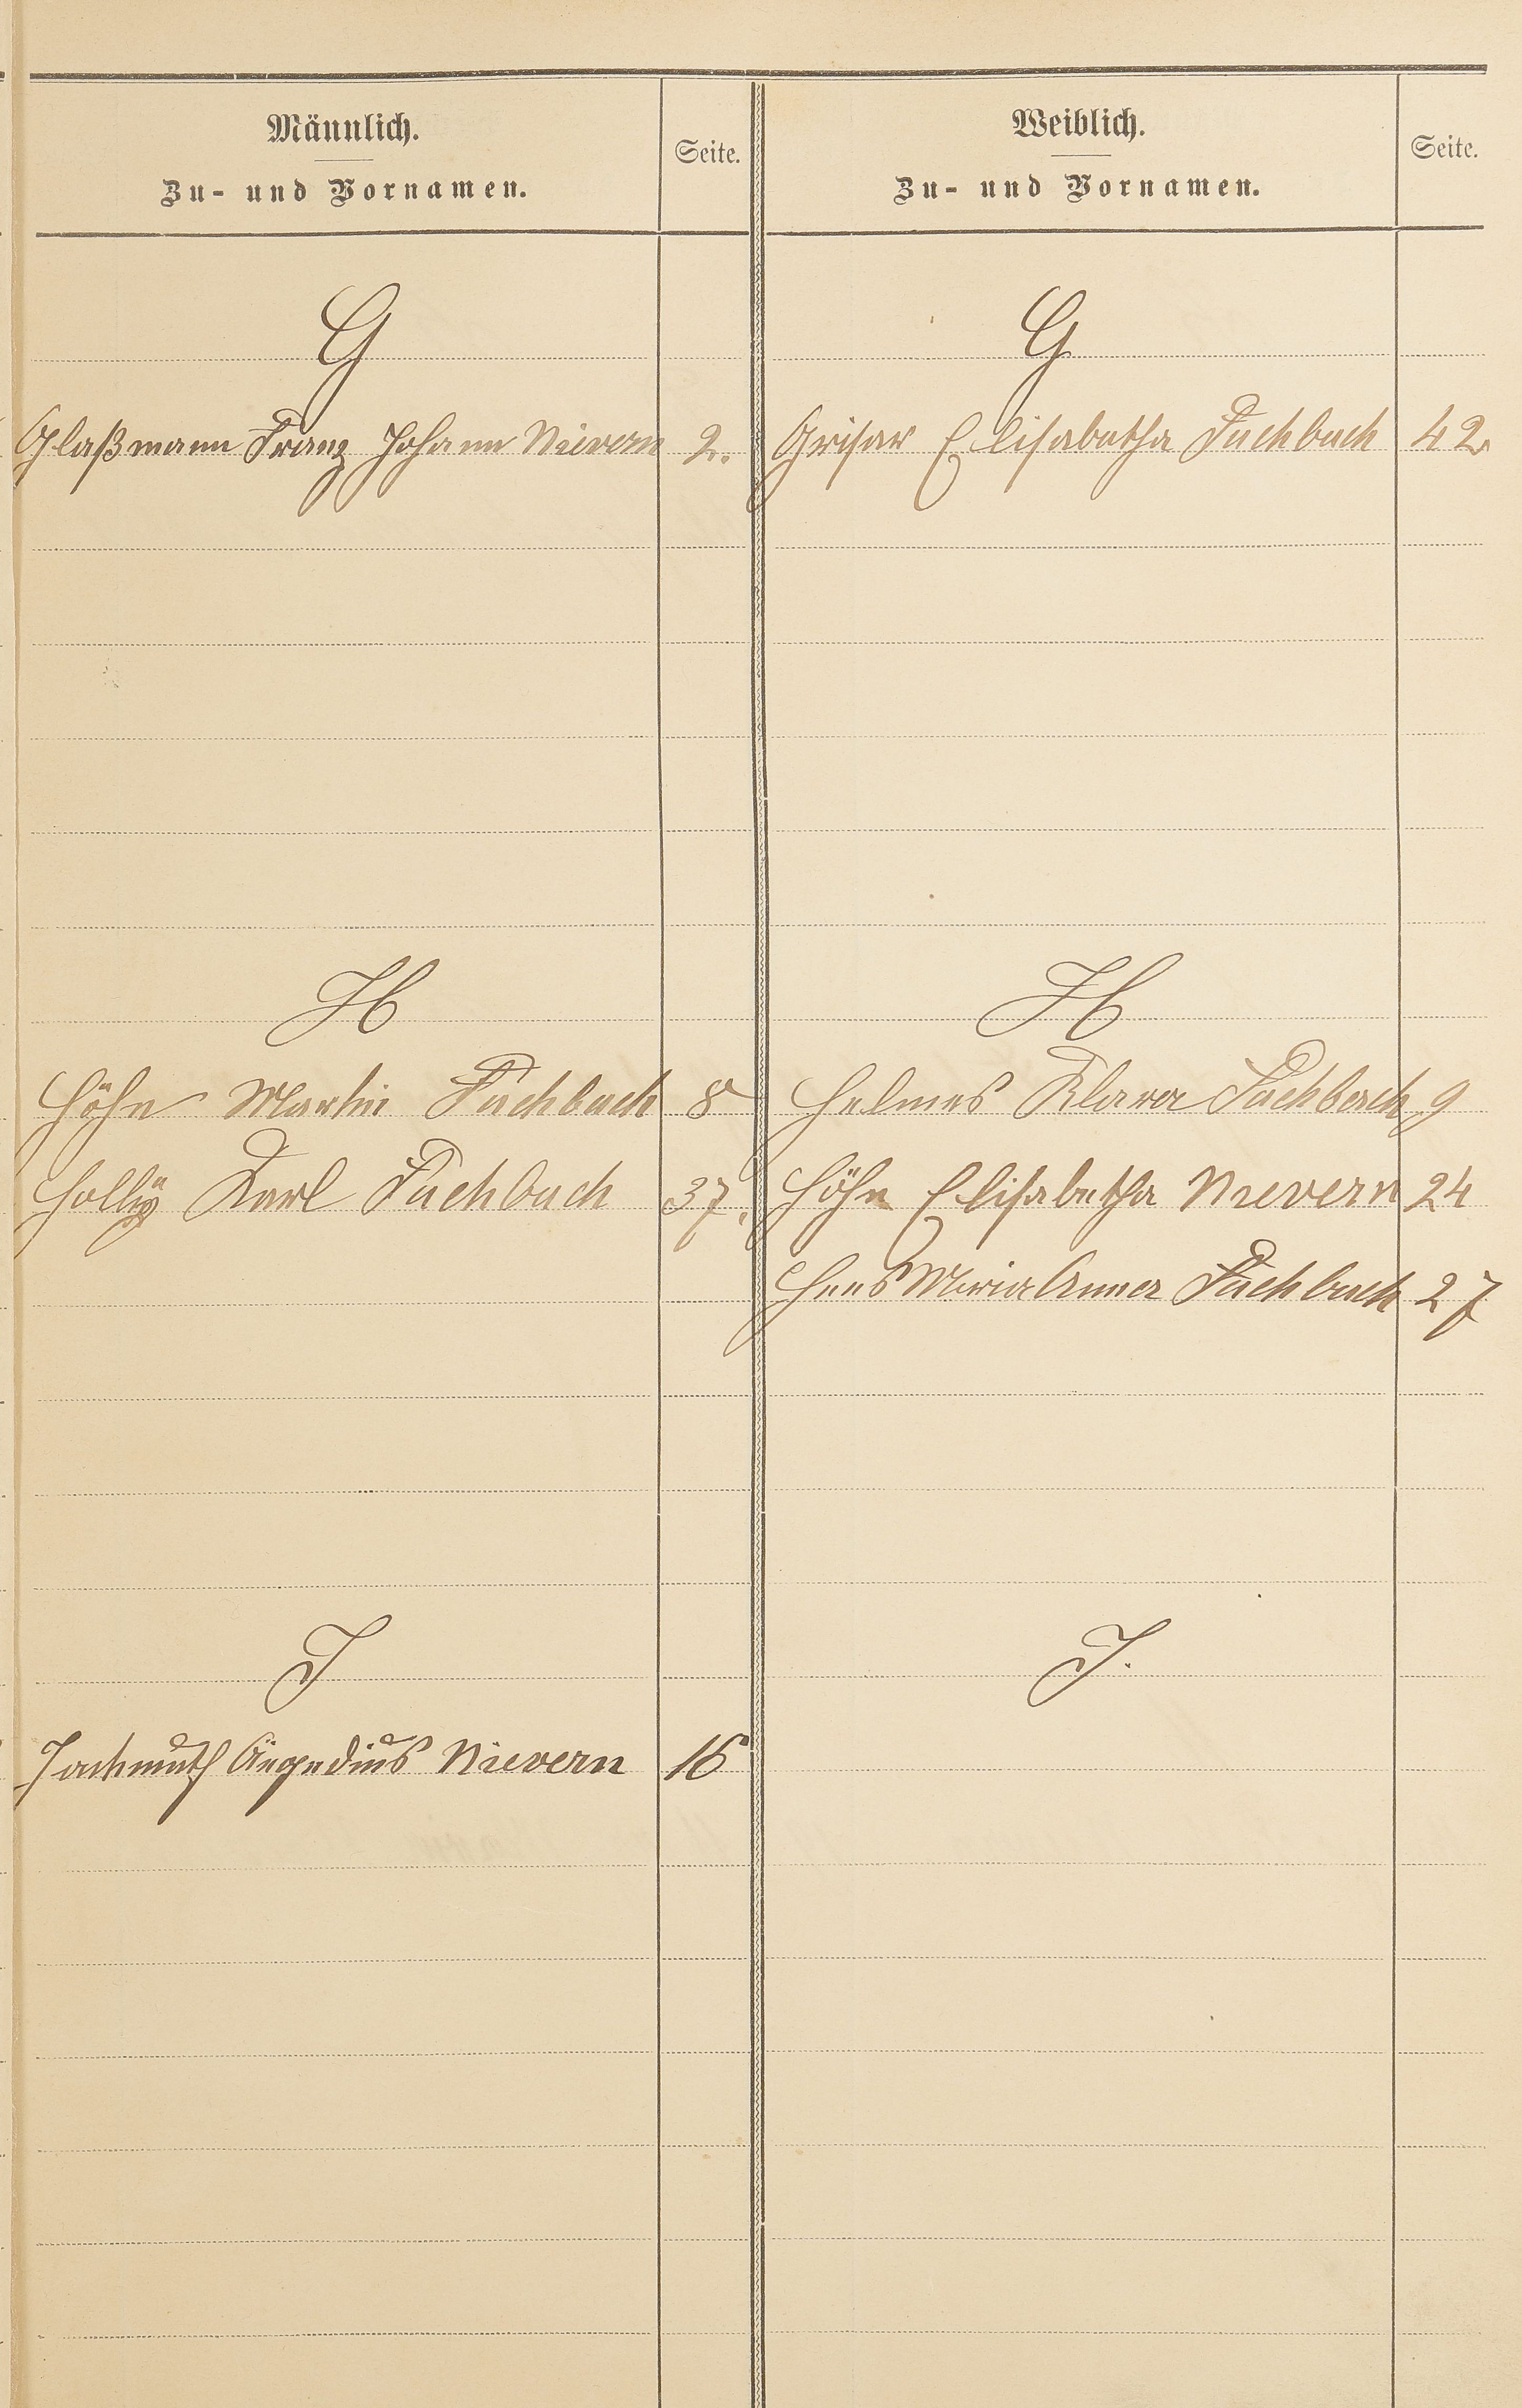 Männlich.
Zu- und Vornamen.
Seite.
Weiblich.
Zu- und Vornamen.
Seite.
G
G
Glaßmann Franz Johann Nievern 2.
Grisar Elisabetha Fachbach 42.
H
H
Höhn Martin Fachbach 8
Helmes Klara Fachbach 9
Holly Karl Fachbach 37.
Höhn Elisabetha Nievern 24
Hees Maria Anna Fachbach 27
J
J.
Jachmuth Aegedius Nievern 16